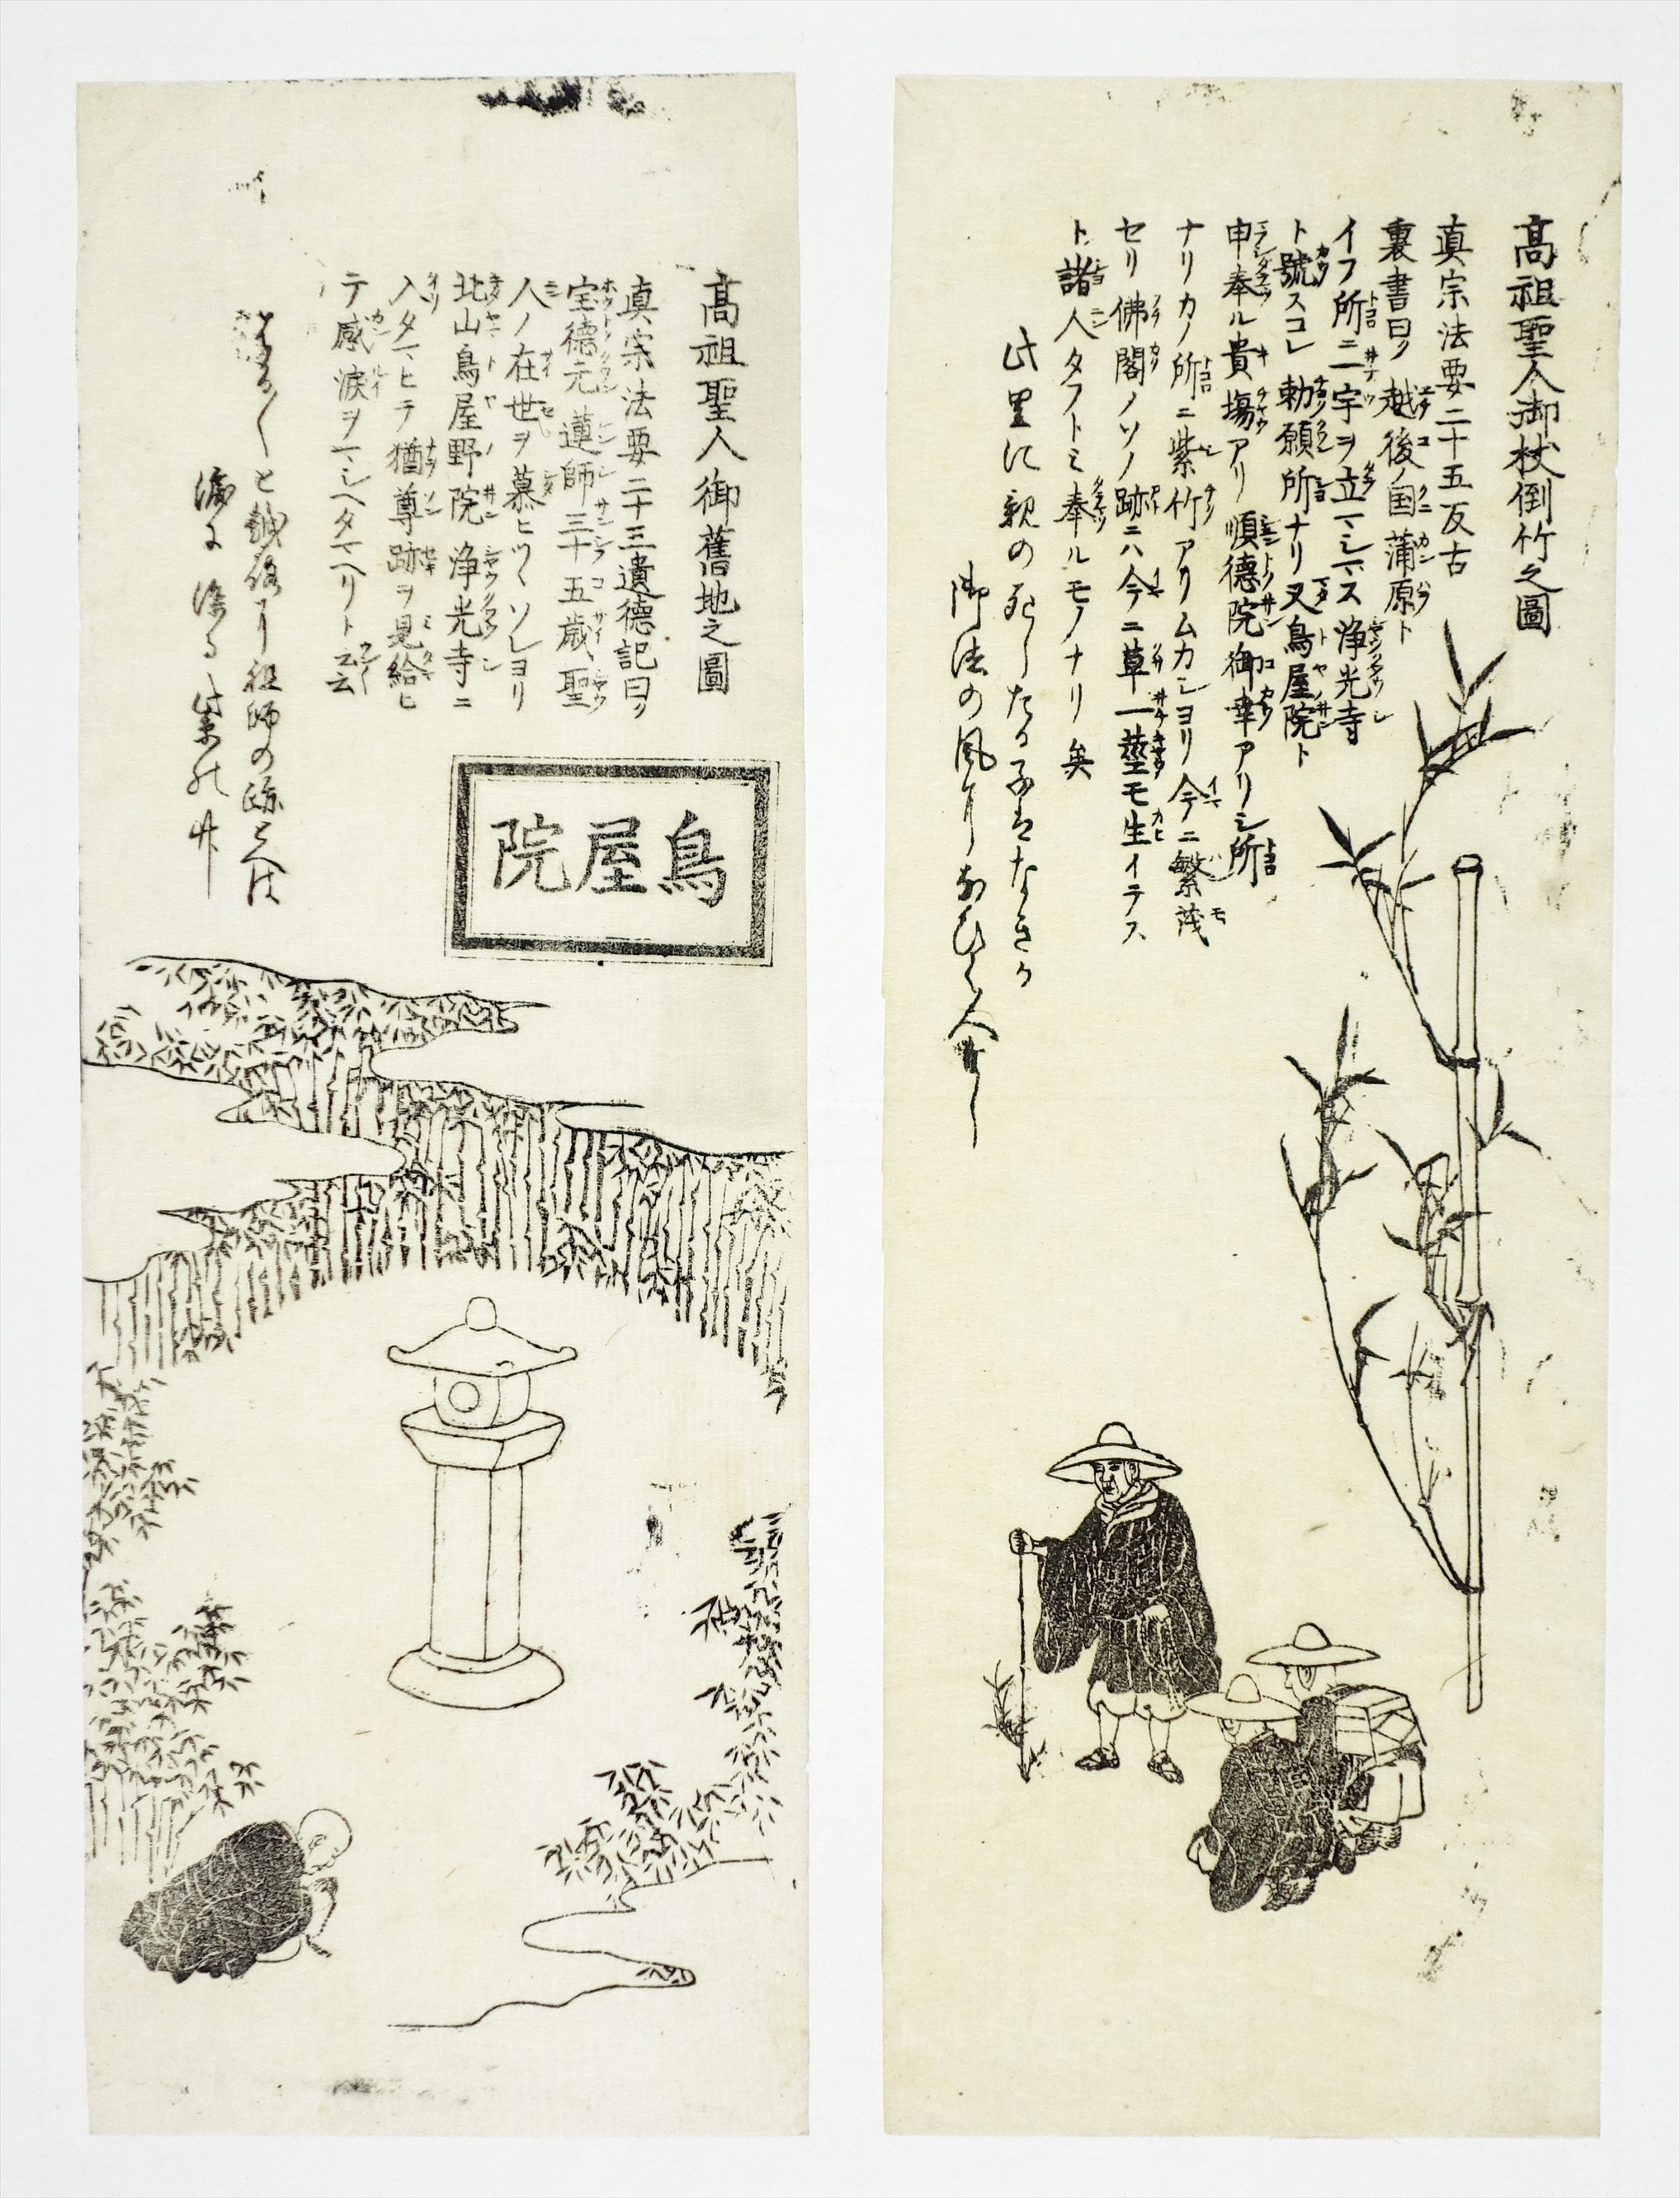 高祖聖人御杖倒竹之圖
真宗法要二十五反古
裏書曰ク越後ノ国蒲原ト
イフ所ニ一宇ヲ立マシマス浄光寺
ト號スコレ勅願所ナリ又鳥屋院ト
申奉ル貴塲アリ順徳院御幸アリシ所
ナリカノ所ニ紫竹アリムカシヨリ今ニ繁茂
セリ佛閣ノソノ跡ニハ今ニ草一莖モ生イテス
ト諸人タフトミ奉ルモノナリ矣
此里に親の死したる子はなきか
御法の風になひく人なし
高祖聖人御舊地之圖
真宗法要二十三遺德記曰ク
宝德元蓮師三十五歳聖
人ノ在世ヲ慕ヒツヽソレヨリ
北山鳥屋野院浄光寺ニ
入タマヒテ猶尊跡ヲ見給ヒ
テ感涙ヲマシヘタマヘリト云云
鳥屋院
と祖師の跡